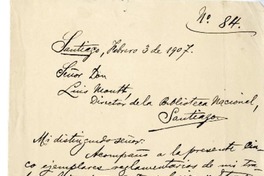 Nº 84.
Santiago, Febrero 3 de 1907.
Señor Don
Luis Montt
Director de la Biblioteca Nacional,
Santiago.
Mi distinguido señor:
Acompaño a la presente cin
co ejemplares reglamentarios de mi tra